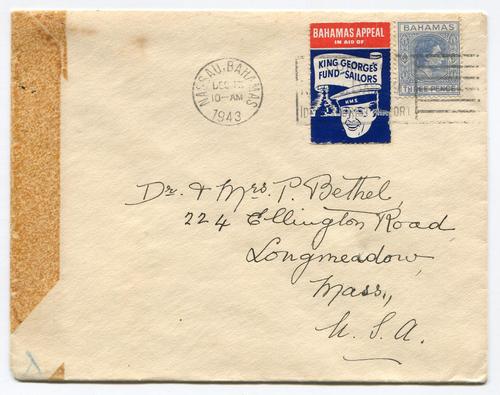 BAHAMAS APPEAL
IN AID OF
KING GEORGE'S
FUND FOR SAILORS
HMS
BAHAMAS
THREE PENCE
NASSAU, BAHAMAS
DEC
10-AM
1943
Dr. & Mrs. P. Bethel,
224 Ellington Road
Longmeadow,
Mass.,
U.S.A.